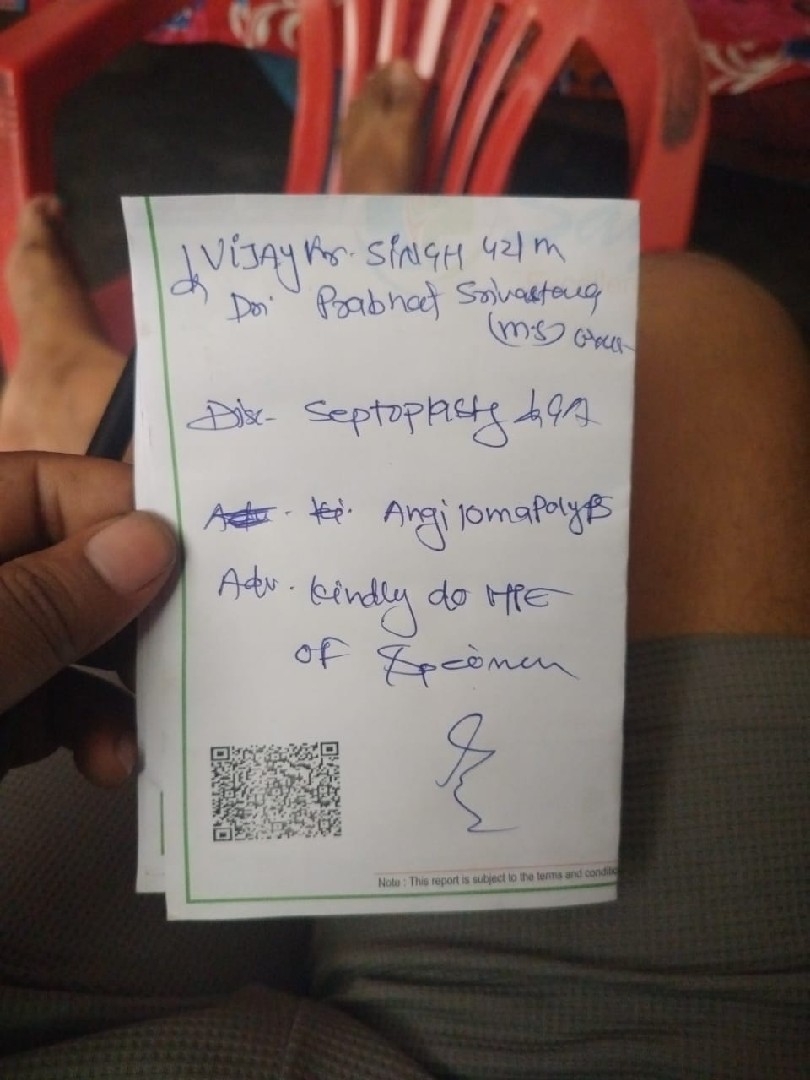 VIJAY Kr. SINGH 42/m
Dr. Prabhat Srivastava
(M.S)
Septoplasty
Angiomapolyps
Adv. kindly do HPE
of Specimen
Note : This report is subject to the terms and conditio